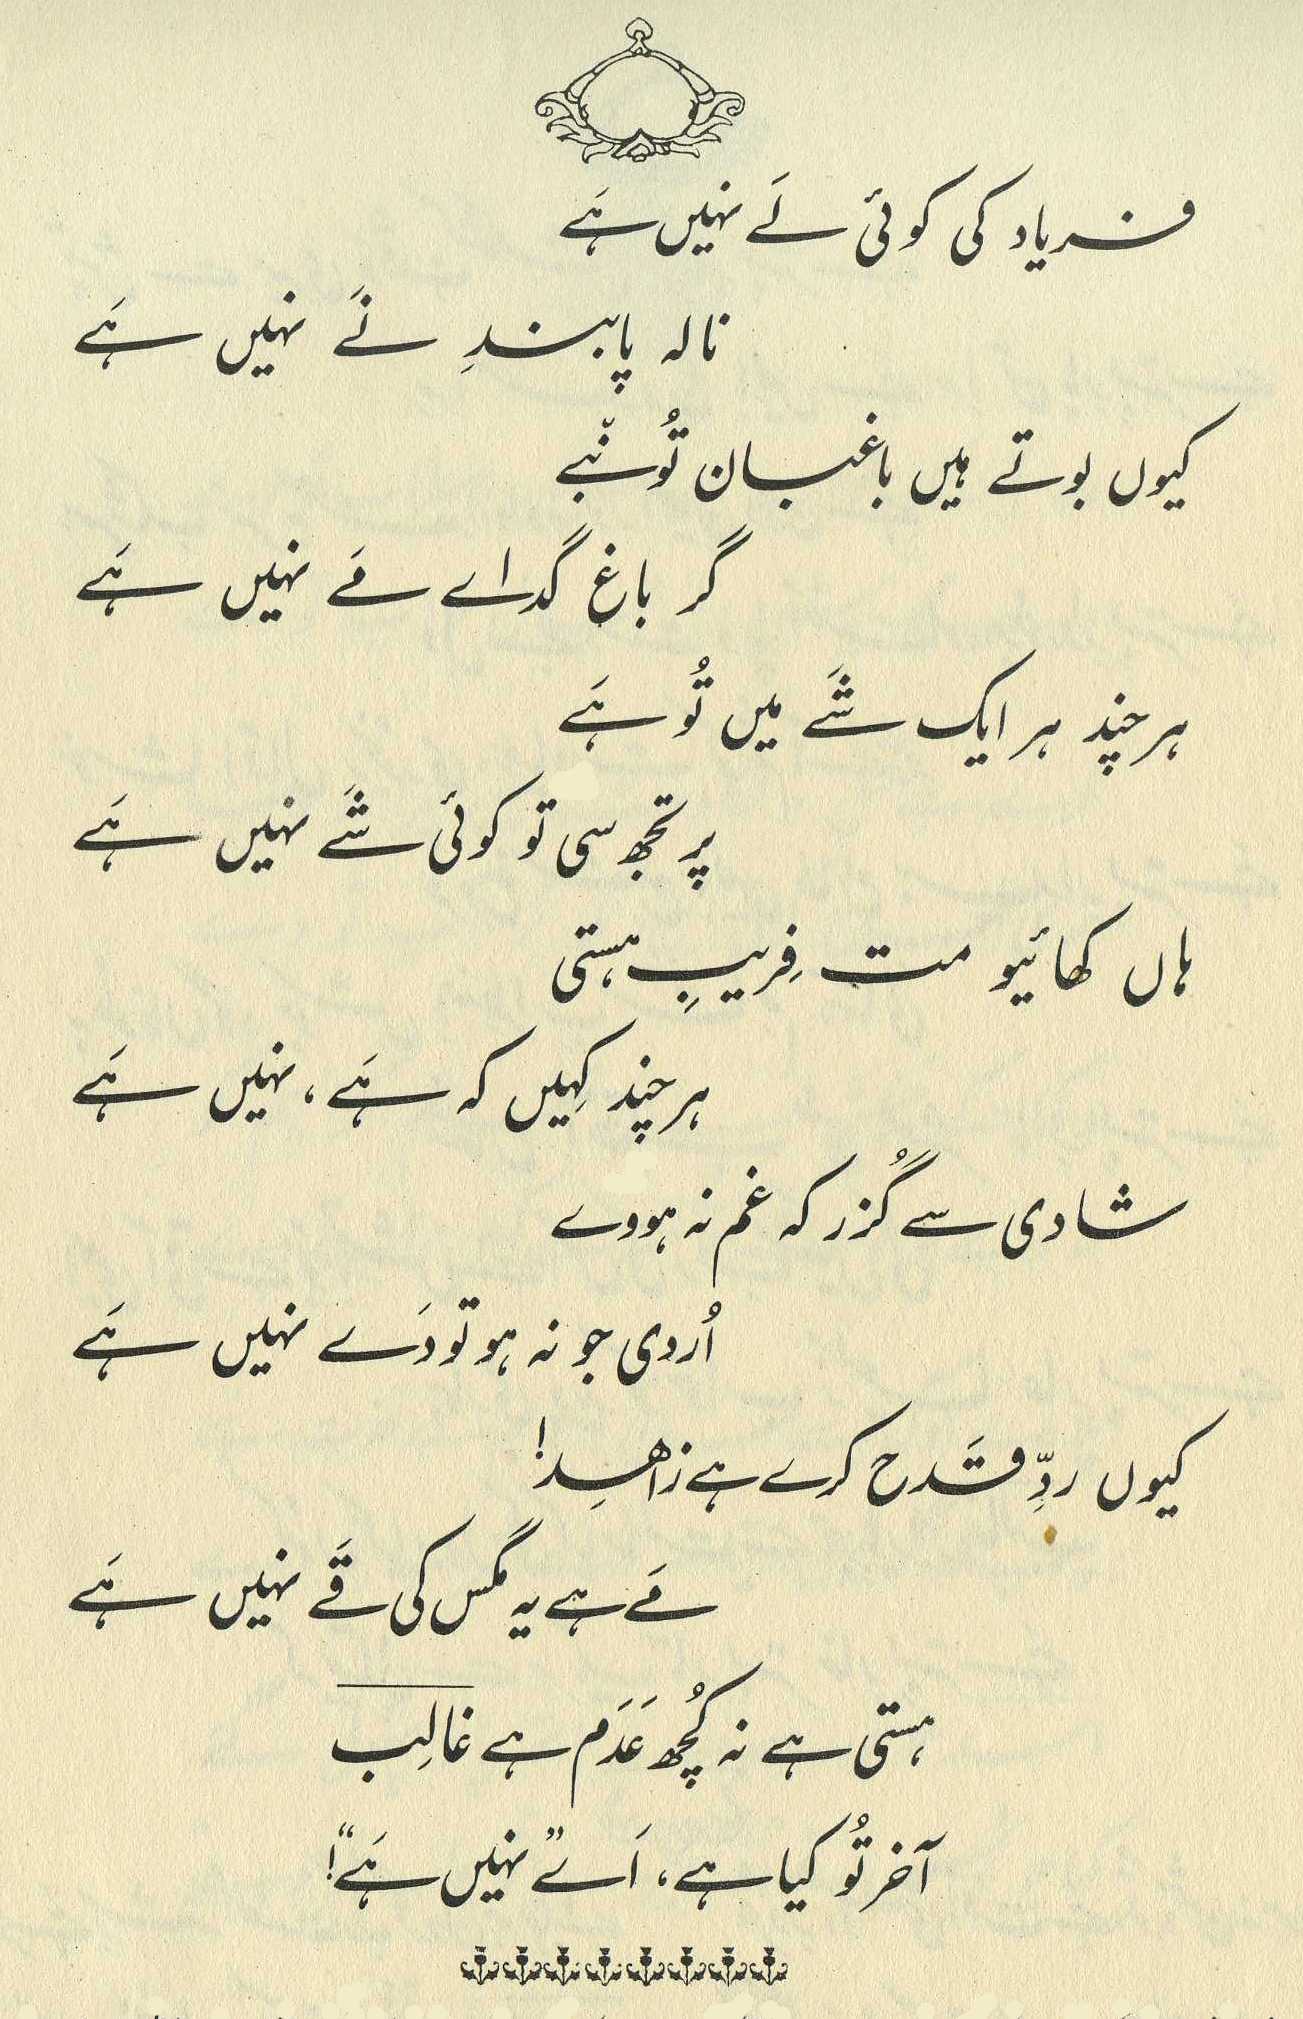 فریاد کی کوئی لَے نہیں ہَے
نالہ پابندِ نَے نہیں ہَے
کیوں بوتے ہیں باغبان تُونبے
گر باغ گداے مَے نہیں ہَے
ہر چند ہر ایک شَے میں تُو ہَے
پر تجھ سی تو کوئی شَے نہیں ہَے
ہاں کھائیو مت فِریبِ ہستی
ہر چند کہیں کہ ہَے، نہیں ہَے
شادی سے گُزر کہ غم نہ ہووے
اُردی جو نہ ہو تو دَے نہیں ہَے
کیوں ردِّ قَدح کرے ہے زاہِد!
مَے ہے یہ مگس کی قَے نہیں ہَے
ہستی ہے نہ کُچھ عَدَم ہے غالِب
آخر تُو کیا ہے، اَے ”نہیں ہَے“!